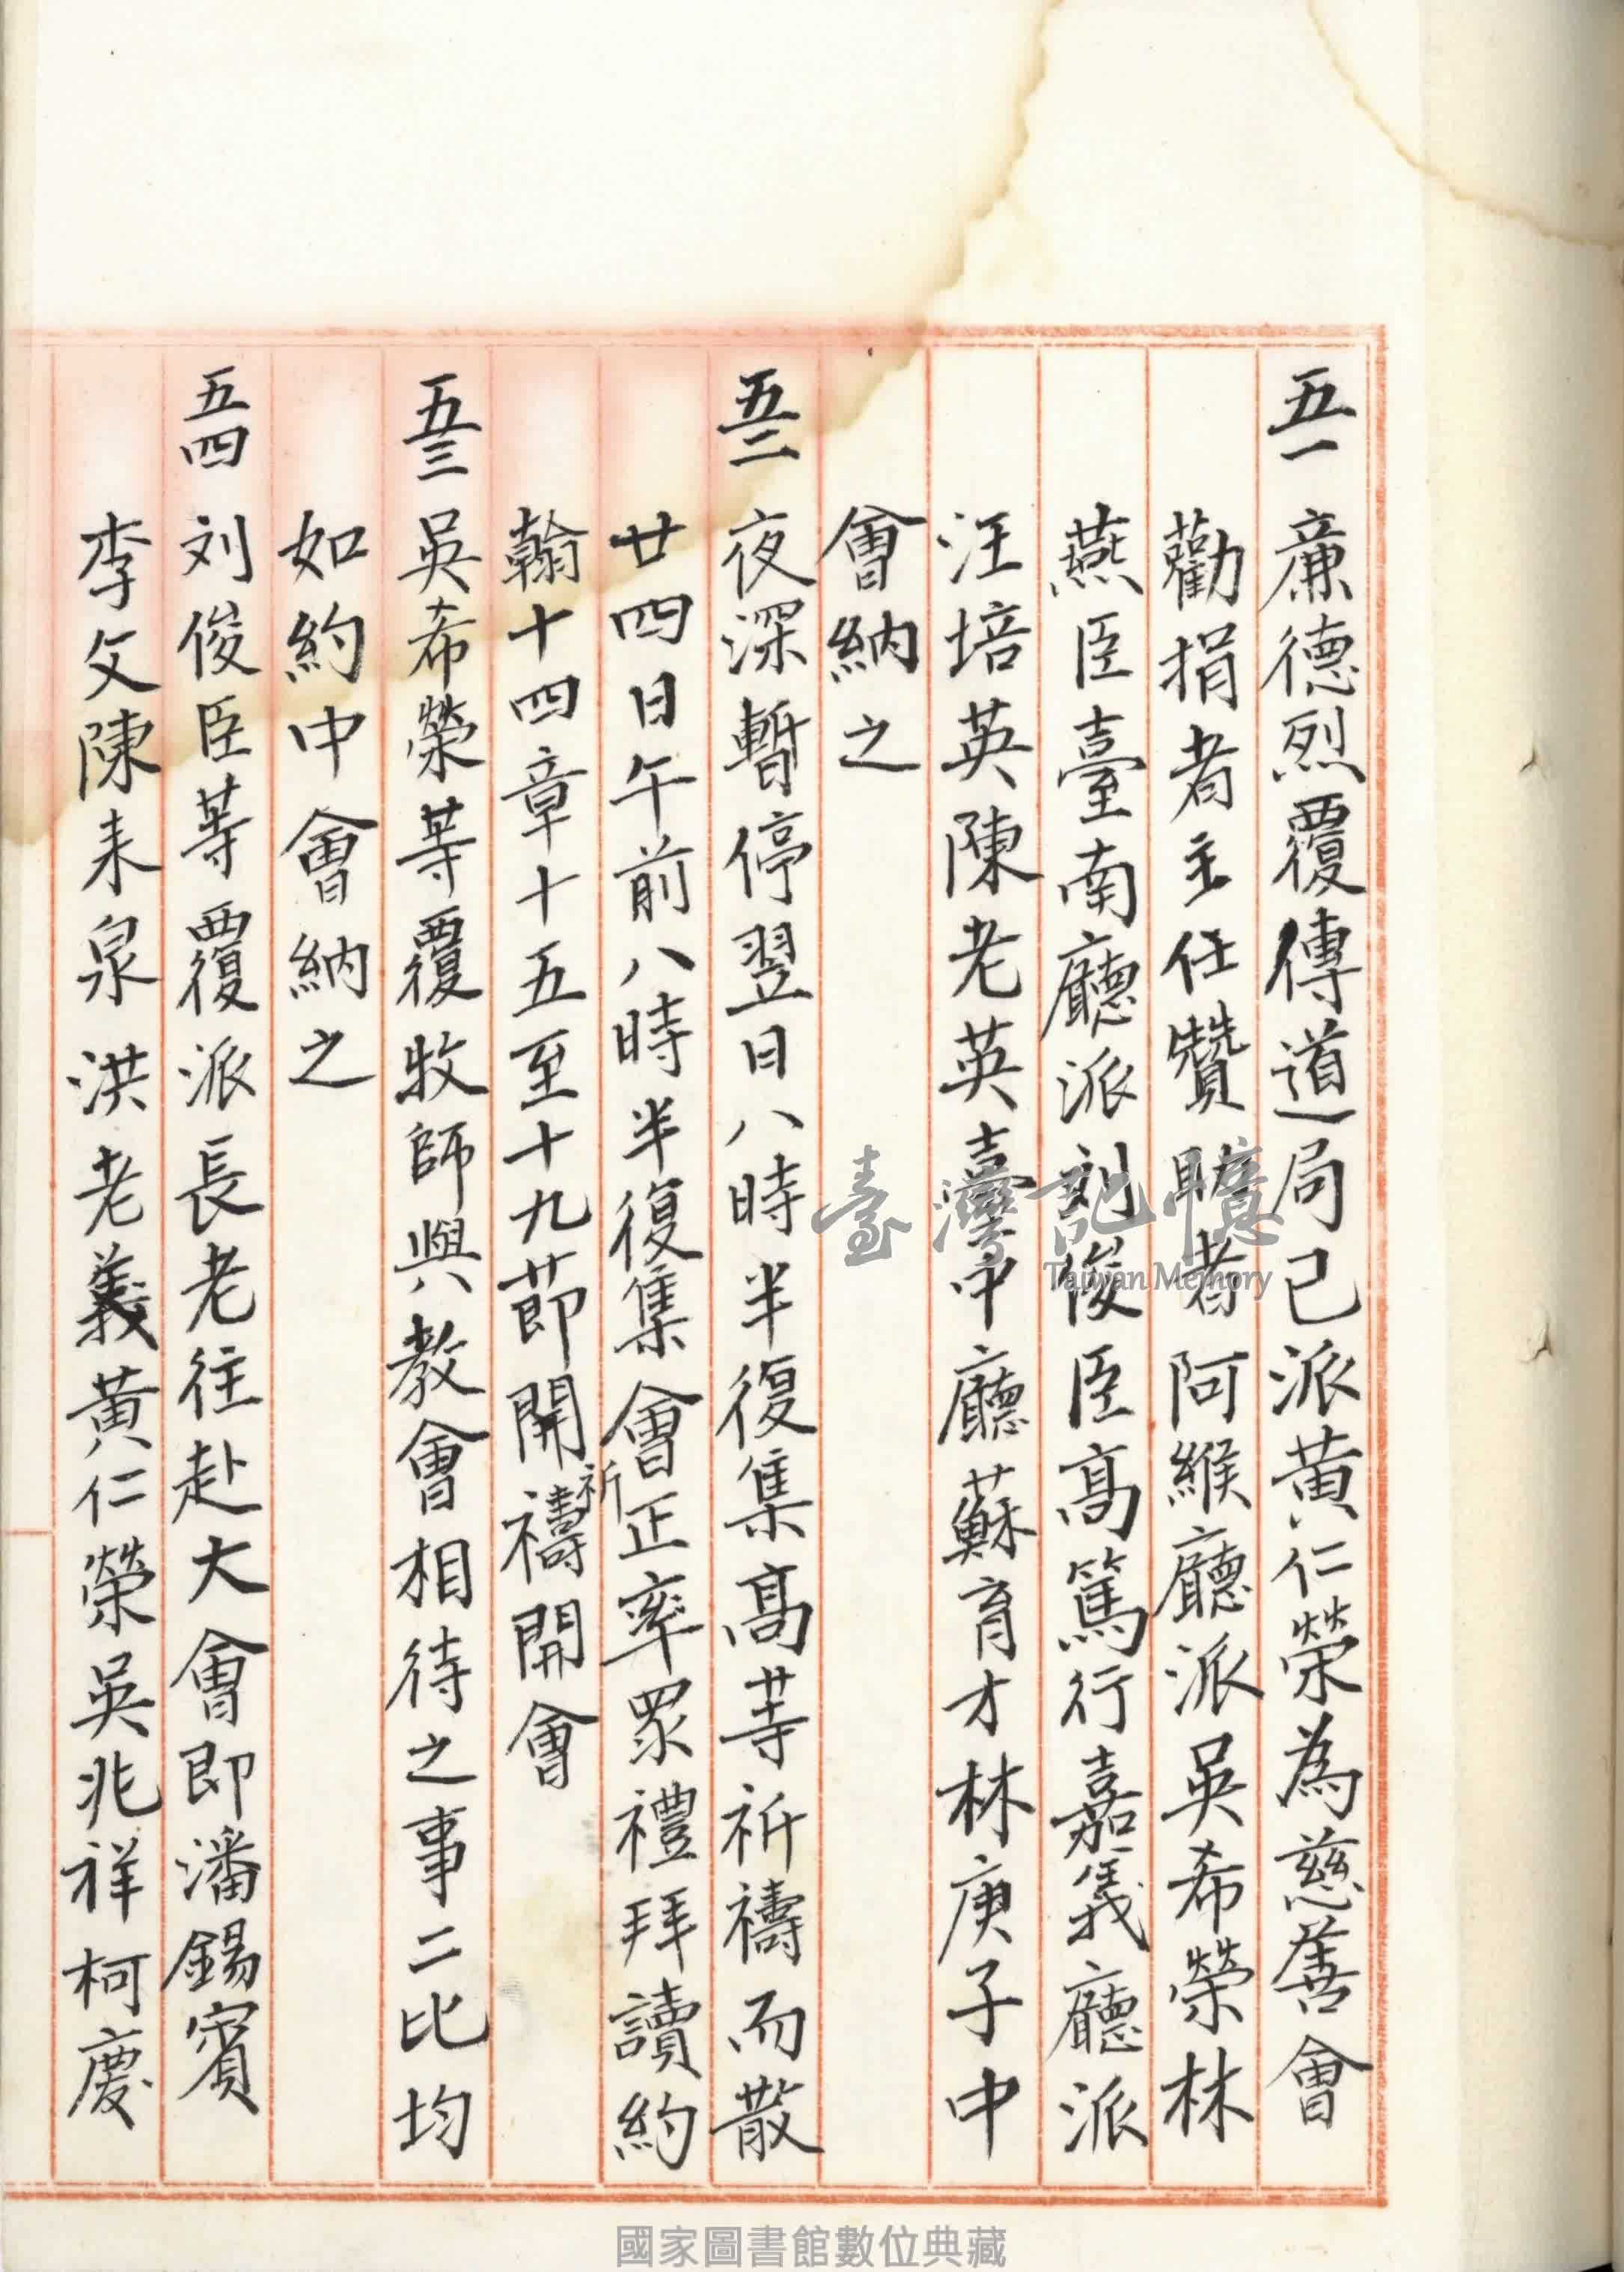 五一 廉德烈覆傳道局已派黃仁榮為慈善會
勸捐者主任贊助者阿緱廳派吳希榮林
燕臣臺南廳派刘俊臣高篤行嘉義廳派
汪培英陳老英臺中廳蘇育才林庚子中
會納之
五二 夜深暫停翌日八時半復集高䓁祈禱而散
廿四日午前八時半復集會正率眾禮拜讀約
翰十四章十五至十九節開祈禱開會
五三 吳希榮等覆牧師與教會相待之事二比均
如約中會納之
五四 刘俊臣䓁覆派長老往赴大會即潘錫賓
李攵陳耒泉洪老義黃仁榮吳兆祥柯慶
臺灣記憶
Taiwan Memory
國家圖書館數位典藏